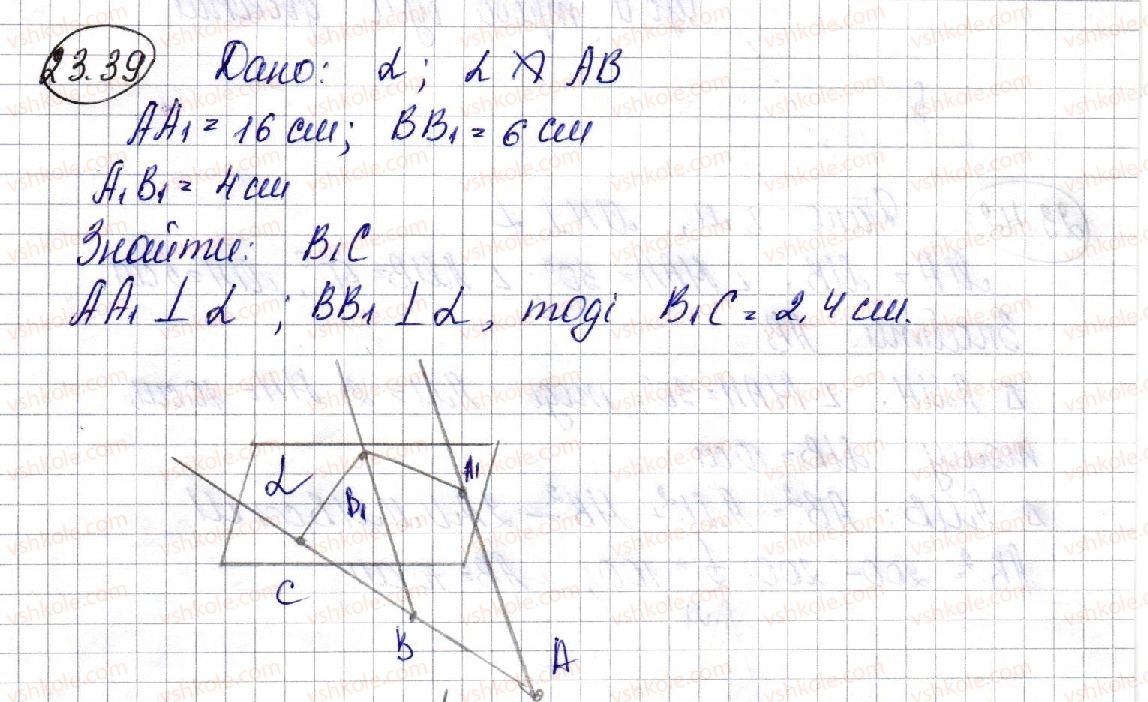 23.39 Дано: α; α ∦ AB
AA₁ = 16 см; BB₁ = 6 см
A₁B₁ = 4 см
Знайти: B₁C
AA₁ ⊥ α ; BB₁ ⊥ α, тоді B₁C = 2,4 см.
α
A₁
B₁
C
B
A
vshkole.com